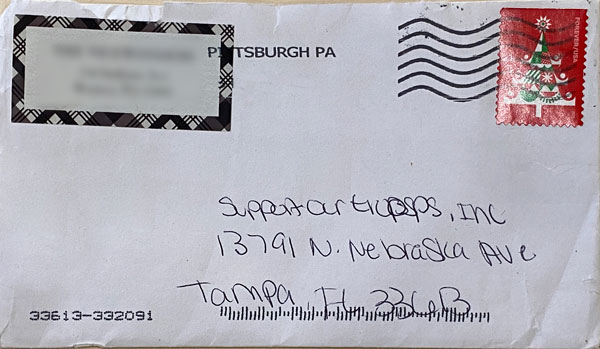 PITTSBURGH PA
FOREVER/USA
Support our troops, Inc
13791 N. Nebraska Ave
Tampa, Fl 33613
33613-332091